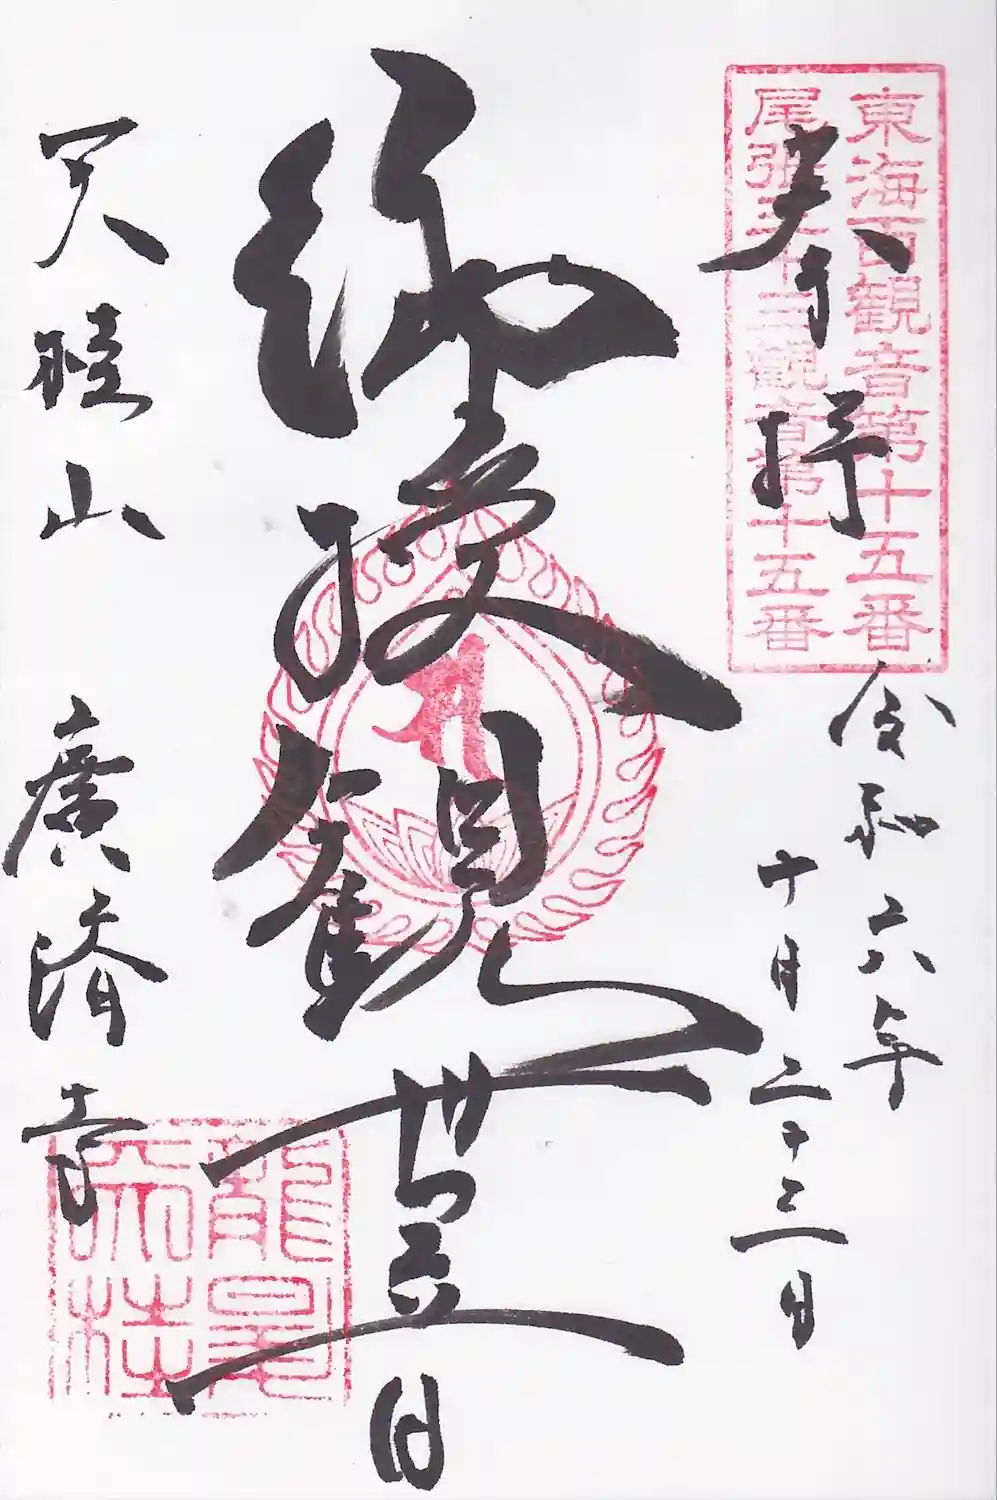 東海百観音第十五番
尾張三十三観音第十五番
奉拝
令和六年
十月二十三日
縁接観世音
天睦山 廣済寺